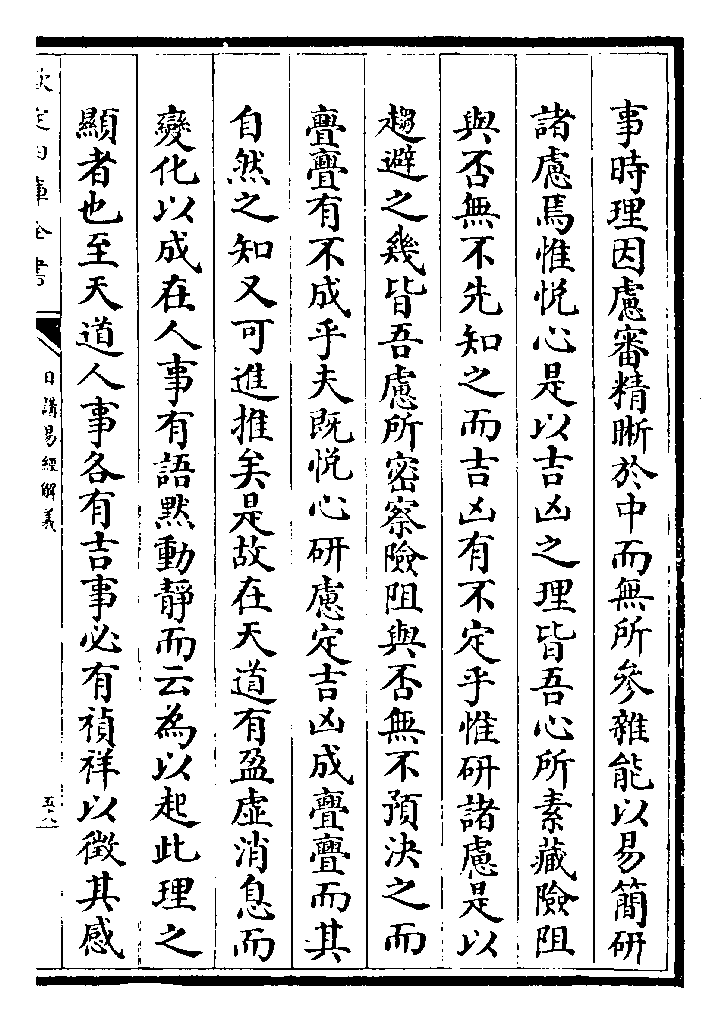 事時理因慮審精晰於中而無所參雜能以易簡研
諸慮焉惟悅心是以吉凶之理皆吾心所素藏險阻
與否無不先知之而吉凶有不定乎惟研諸慮是以
趨避之幾皆吾慮所密察險阻與否無不預決之而
亹亹有不成乎夫既悅心研慮定吉凶成亹亹而其
自然之知又可進推矣是故在天道有盈虛消息而
變化以成在人事有語默動靜而云為以起此理之
顯者也至天道人事各有吉事必有禎祥以徵其感
欽定四庫全書
日講易經解義
五十八